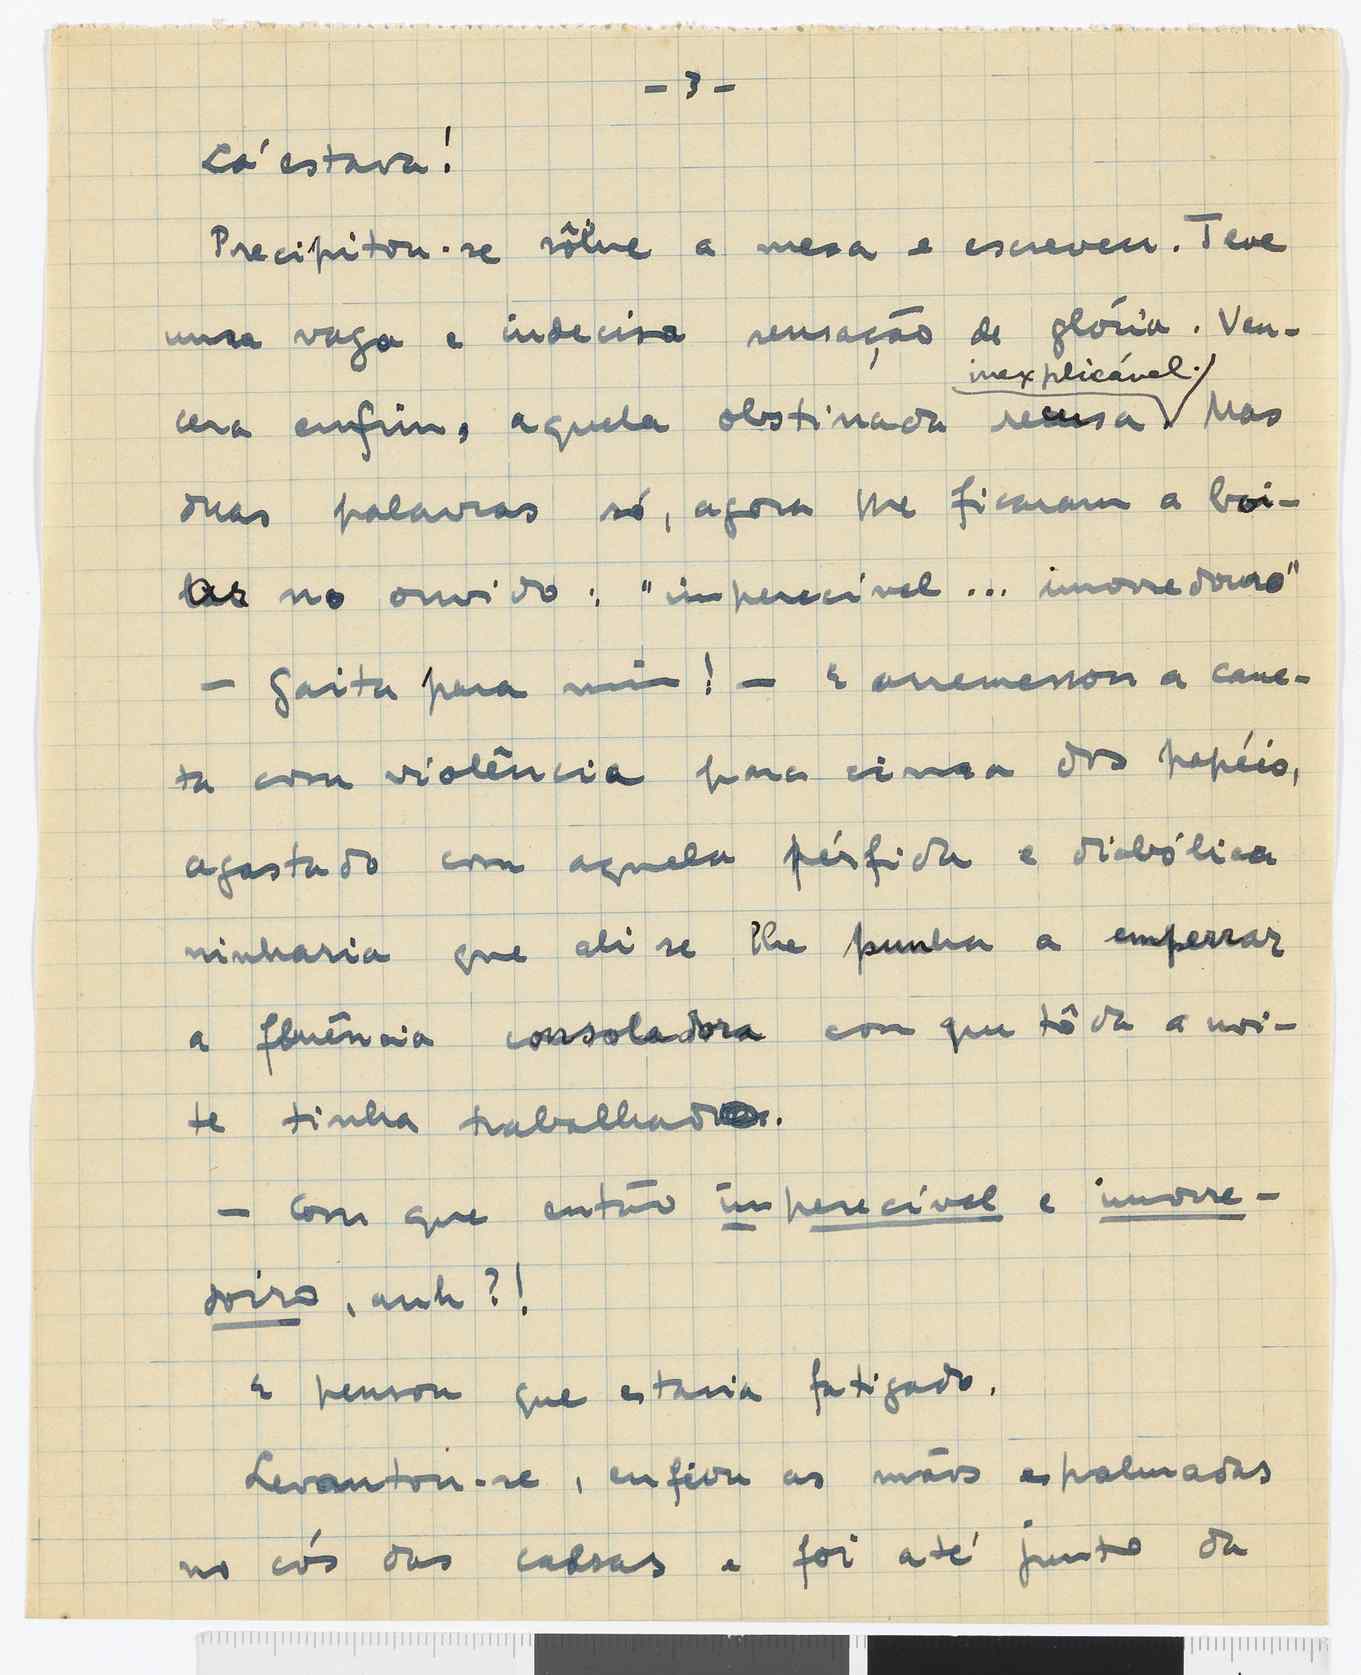 - 3 -
Lá estava!
Precipitou-se sôbre a mesa e escreveu. Teve
uma vaga e indecisa sensação de glória. Ven-
inexplicável.
cera enfim, aquela obstinada recusa. Mas
duas palavras só, agora lhe ficaram a boi-
lar no ouvido: "imperecível... imorredouro"
— Gaita para mim! — E arremessou a cane-
ta com violência para cima dos papéis,
agastado com aquela pérfida e diabólica
ninharia que ali se lhe punha a emperrar
a fluência consoladora com que tôda a noi-
te tinha trabalhado.
— Com que então imperecível e imorre-
doiro, anh?!
E pensou que estaria fatigado.
Levantou-se, enfiou as mãos espalmadas
no cós das calsas e foi até junto da